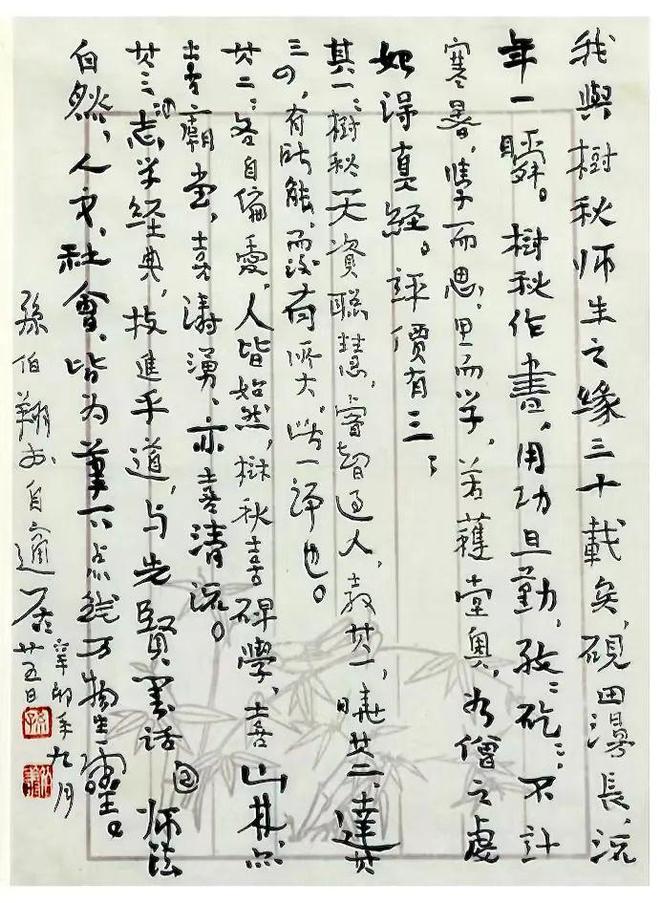 我與樹秋师生之緣三十載矣,硯田漫長,流
年一瞬。樹秋作書,用功且勤,孜〻矻〻,不計
寒暑,而思,思而学,若獲堂奥,僧之處
如得真經。評價有三:
其一:樹秋天資聪慧,睿智过人,教其一,曉其二,達其
三四,有所能,而後有所大,此一評也。
其二:各自偏愛,人皆如然,樹秋喜碑學,喜山林,亦
喜廟堂,喜濤湧,亦喜清流。
其三:志学經典,技進乎道,与先賢话,师法
自然、人文、社會,皆为筆下点线万物生靈。
孫伯翔於自適居
辛卯年九月
廿五日